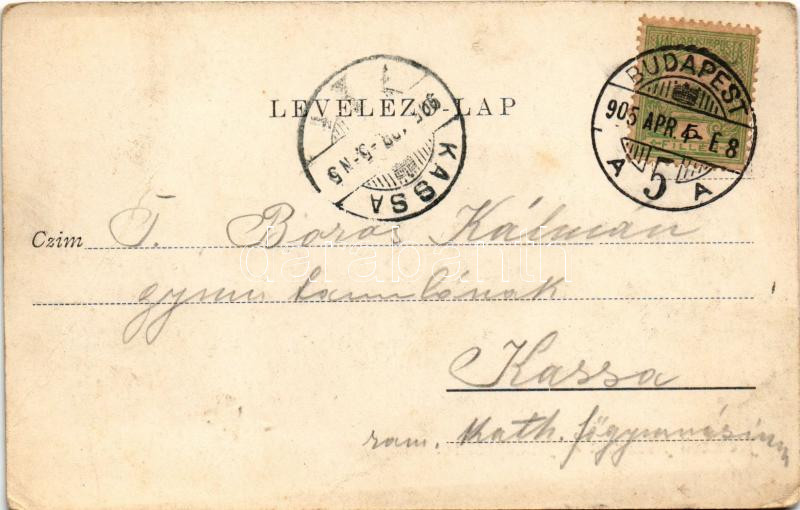 LEVELEZŐ-LAP
BUDAPEST
905 APR. 5 E 8
A 5 A
905 APR 5 N 5
KASSA
Czim T. Boros Kálmán
gymn tanulónak
Kassa
rom. kath. főgymnásium
darabanth